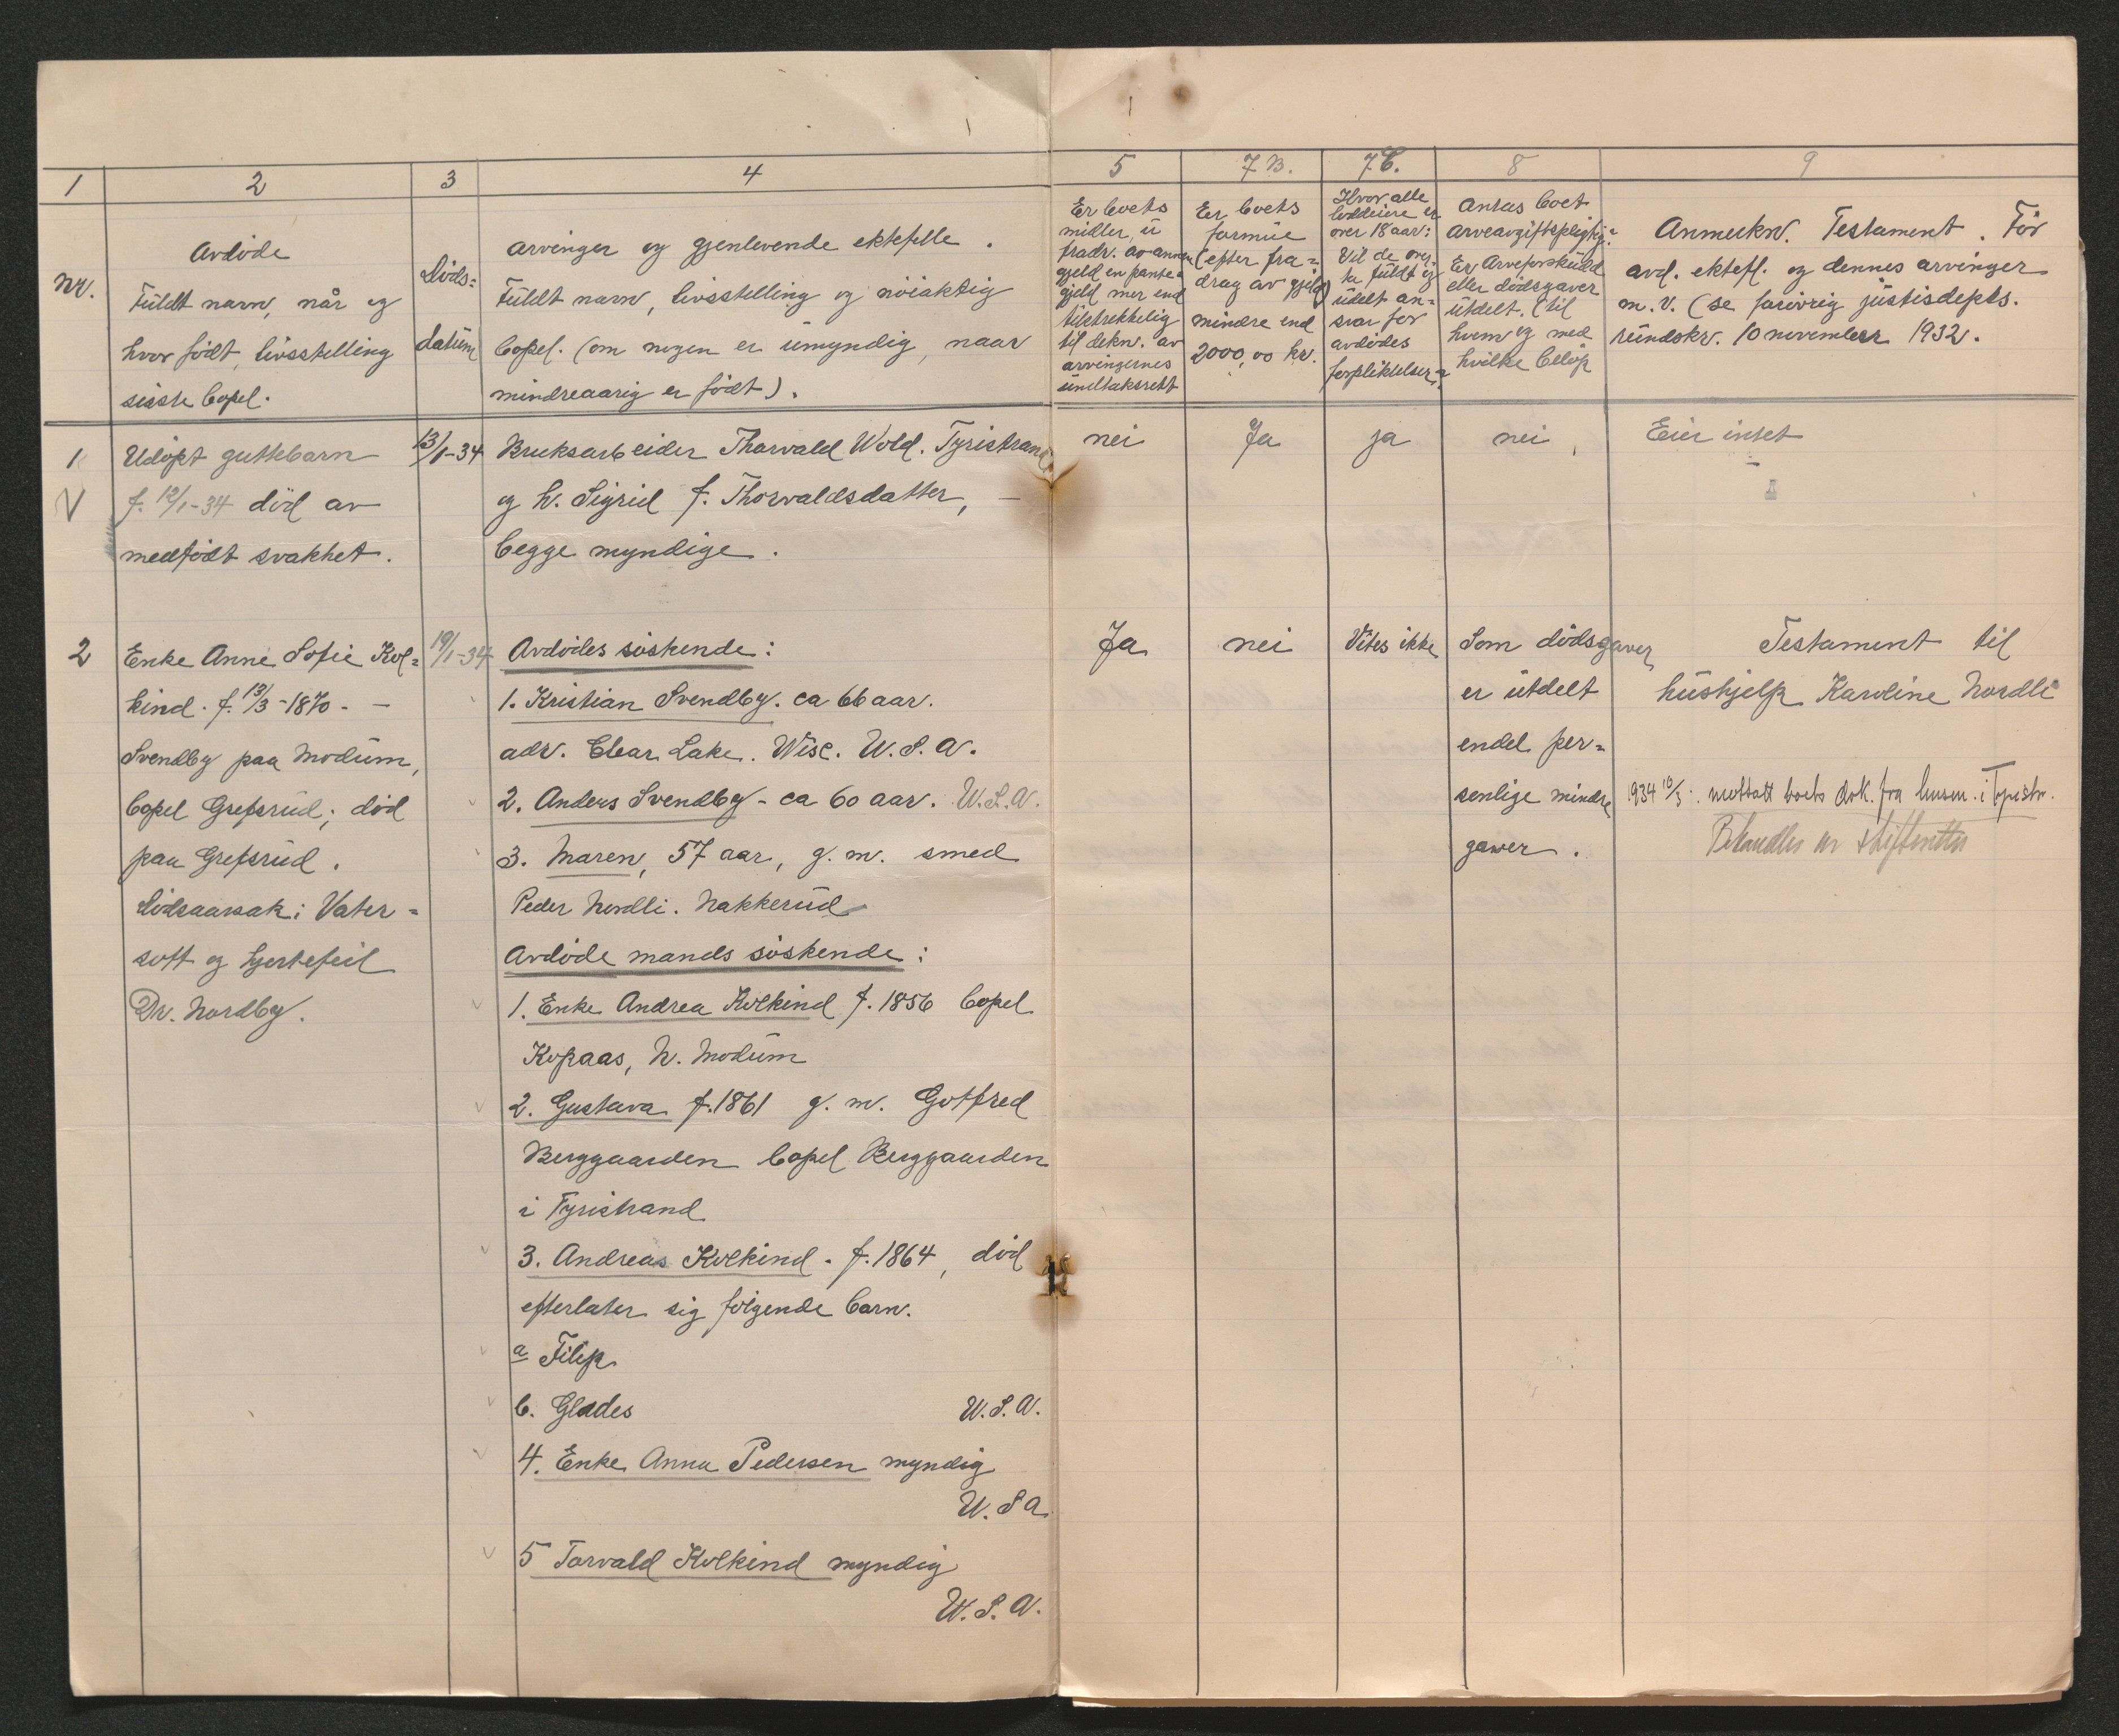 1 2 3 4 5 7 B. 7 C. 8 9
Nr.
Avdøde
Fuldt navn, når og
hvor født, livsstilling
sisste bopel.
Døds=
datum
arvinger og gjenlevende ektefelle.
Fuldt navn, livsstilling og nøiaktig
bopel. (om nogen er umyndig, naar
mindreaarig er født).
Er boets
midler, u
fradr. av annen
gjeld en pante=
gjeld mer end
tilstrekkelig
til dekn. av
arvingernes
undtaksrett
Er boets
formue
(efter fra=
drag av gjeld)
mindre end
2000,00 kr.
Hvor alle
loddeiere er
over 18 aar:
Vil de over=
ta fuldt og
udelt an=
svar for
avdødes
forpliktelser?
Antas boet
arveavgiftspligtig?
Er Arveforskudd
eller dødsgaver
utdelt. (til
hvem og med
hvilke beløp
Anmerkn. Testament. Før
avd. ektefl. og dennes arvinger
m. v. (se forøvrig justisdepts.
rundskr. 10 november 1932.
1
V
Udøpt guttebarn
f. 12/1-34 død av
medfødt svakhet.
13/1-34
Bruksarbeider Thorvald Wold. Tyristrand
og h. Sigrid f. Thorvaldsdatter, –
begge myndige.
nei Ja ja nei, Eier intet
2
Enke Anne Sofie Kol=
kind. f. 13/3-1870. –
Svendby paa Modum,
bopel Grefsrud; død
paa Grefsrud.
Dødsaarsak: Vater=
sott og hjertefeil
Dr. Nordby.
19/1-34
Avdødes søskende:
1. Kristian Svendby. ca 66 aar.
adr. Clear Lake. Wisc. U. S. A.
2. Anders Svendby - ca 60 aar. U. S. A.
3. Maren, 57 aar, g. m. smed
Peder Nordli. Nakkerud
Avdøde mands søskende:
1. Enke Andrea Kolkind f. 1856 bopel
Kopaas, N. Modum
2. Gustava f. 1861 g. m. Gotfred
Berggaarden bopel Berggaarden
i Tyristrand
3. Andreas Kolkind. f. 1864, død
efterlater sig følgende barn.
a Filip
b. Glades U. S. A.
4. Enke Anna Pedersen myndig
U. S A.
5 Torvald Kolkind myndig
U. S. A.
Ja nei Vites ikke
Som dødsgaver
er utdelt
endel per=
senlige mindre
gaver.
Testament til
hushjelp Karoline Nordli
1934 10/3. mottatt boets dok. fra lensm. i Tyristr.
Behandles av skifteretten